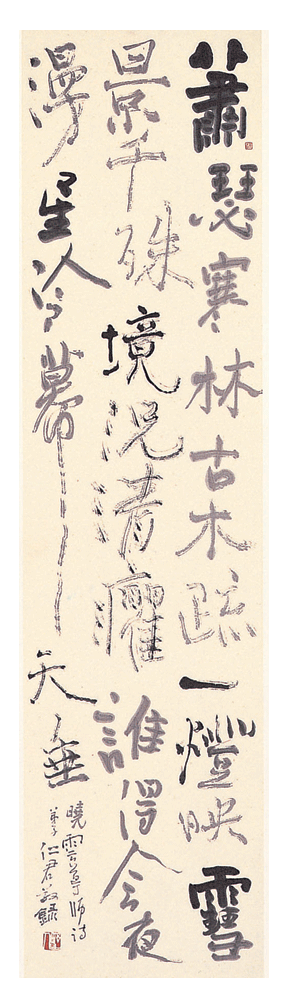 蕭瑟寒林古木疏一燈映雪
景千殊境況清癯誰得今夜
漫星冷幕天垂
曉雲導師詩
弟子仁君敬錄